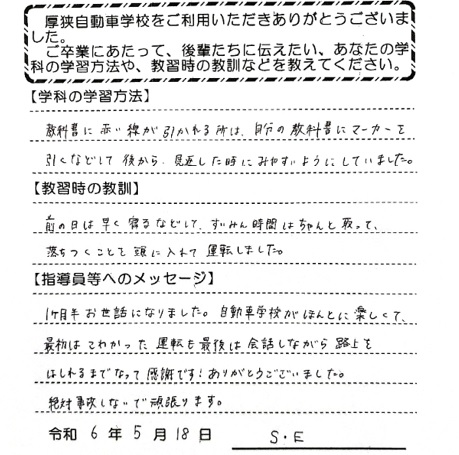 厚狭自動車学校をご利用いただきありがとうございま
した。
ご卒業にあたって、後輩たちに伝えたい、あなたの学
科の学習方法や、教習時の教訓などを教えてください。
【学科の学習方法】
教科書に赤い線が引かれる所は、自分の教科書にマーカーを
引くなどして後から、見返した時にみやすいようにしていました。
【教習時の教訓】
前の日は早く寝るなどして、すいみん時間はちゃんと取って、
落ちつくことを頭に入れて運転しました。
【指導員等へのメッセージ】
1ヶ月半お世話になりました。自動車学校がほんとに楽しくて、
最初はこわかった運転も最後は会話しながら路上を
はしれるまでなって感謝です!ありがとうございました。
絶対事故しないで頑張ります。
令和 6 年 5 月 18 日 S・E